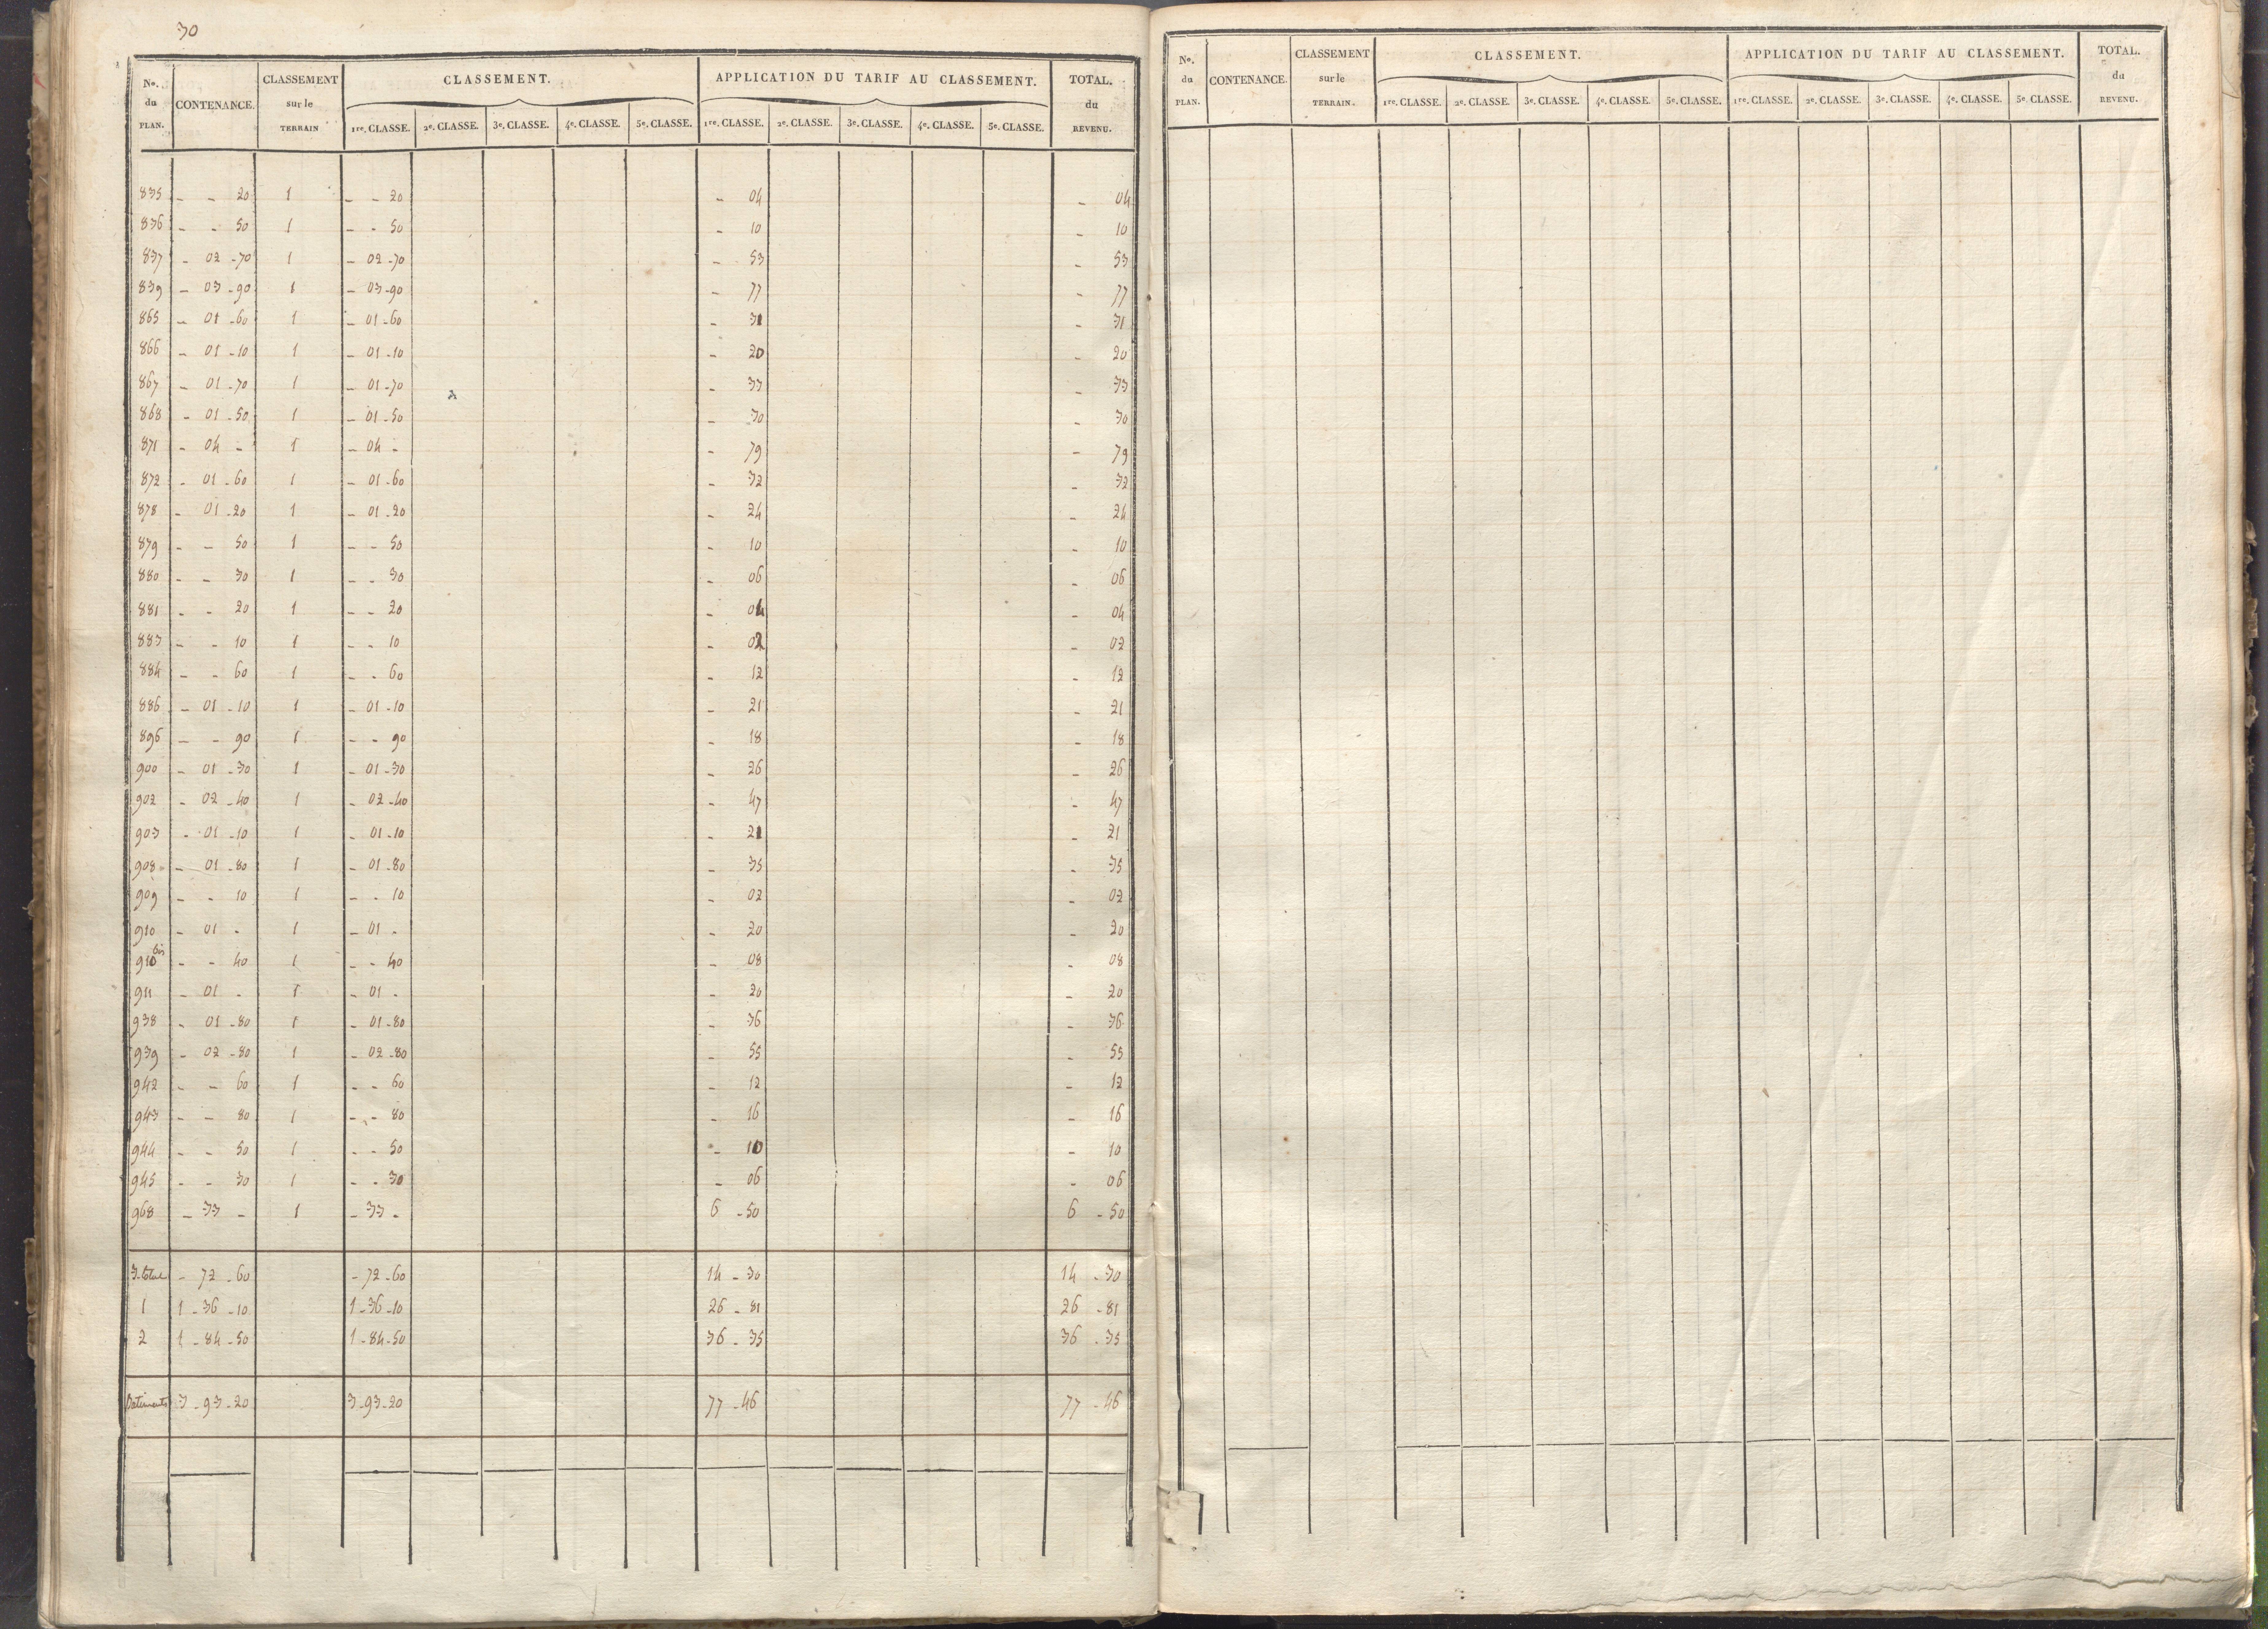 30
No. du PLAN. CONTENANCE. CLASSEMENT sur le TERRAIN CLASSEMENT. APPLICATION DU TARIF AU CLASSEMENT. TOTAL. du REVENU.
1re. CLASSE. 2e. CLASSE. 3e. CLASSE. 4e. CLASSE. 5e. CLASSE. 1re. CLASSE. 2e. CLASSE. 3e. CLASSE. 4e. CLASSE. 5e. CLASSE.
835 - - 20 1 - - 20 - 04 - 04
836 - - 50 1 - - 50 - 10 - 10
837 - 02 - 70 1 - 02 - 70 - 53 - 53
839 - 03 - 90 1 - 03 - 90 - 77 - 77
865 - 01 - 60 1 - 01 - 60 - 31 - 31
866 - 01 - 10 1 - 01 - 10 - 20 - 20
867 - 01 - 70 1 - 01 - 70 - 33 - 33
868 - 01 - 50 1 - 01 - 50 - 30 - 30
871 - 04 - 1 - 04 - - 79 - 79
872 - 01 - 60 1 - 01 - 60 - 32 - 32
878 - 01 - 20 1 - 01 - 20 - 24 - 24
879 - - 50 1 - - 50 - 10 - 10
880 - - 30 1 - - 30 - 06 - 06
881 - - 20 1 - - 20 - 04 - 04
883 - - 10 1 - - 10 - 02 - 02
884 - - 60 1 - - 60 - 12 - 12
886 - 01 - 10 1 - 01 - 10 - 21 - 21
896 - - 90 1 - - 90 - 18 - 18
900 - 01 - 30 1 - 01 - 30 - 26 - 26
902 - 02 - 40 1 - 02 - 40 - 47 - 47
903 - 01 - 10 1 - 01 - 10 - 21 - 21
908 - 01 - 80 1 - 01 - 80 - 35 - 35
909 - - 10 1 - - 10 - 02 - 02
910 - 01 - 1 - 01 - - 20 - 20
910 bis - - 40 1 - - 40 - 08 - 08
911 - 01 - 1 - 01 - - 20 - 20
938 - 01 - 80 1 - 01 - 80 - 36 - 36
939 - 02 - 80 1 - 02 - 80 - 55 - 55
942 - - 60 1 - - 60 - 12 - 12
943 - - 80 1 - - 80 - 16 - 16
944 - - 50 1 - - 50 - 10 - 10
945 - - 30 1 - - 30 - 06 - 06
968 - 33 - 1 - 33 - 6 - 50 6 - 50
3. total - 72 - 60 - 72 - 60 14 - 30 14 - 30
1 1 - 36 - 10 1 - 36 - 10 26 - 81 26 - 81
2 1 - 84 - 50 1 - 84 - 50 36 - 35 36 - 35
Batiments 3 - 93 - 20 3 - 93 - 20 77 - 46 77 - 46
No. du PLAN. CONTENANCE. CLASSEMENT sur le TERRAIN. CLASSEMENT. APPLICATION DU TARIF AU CLASSEMENT. TOTAL. du REVENU.
1re. CLASSE. 2e. CLASSE. 3e. CLASSE. 4e. CLASSE. 5e. CLASSE. 1re. CLASSE. 2e. CLASSE. 3e. CLASSE. 4e. CLASSE. 5e. CLASSE.